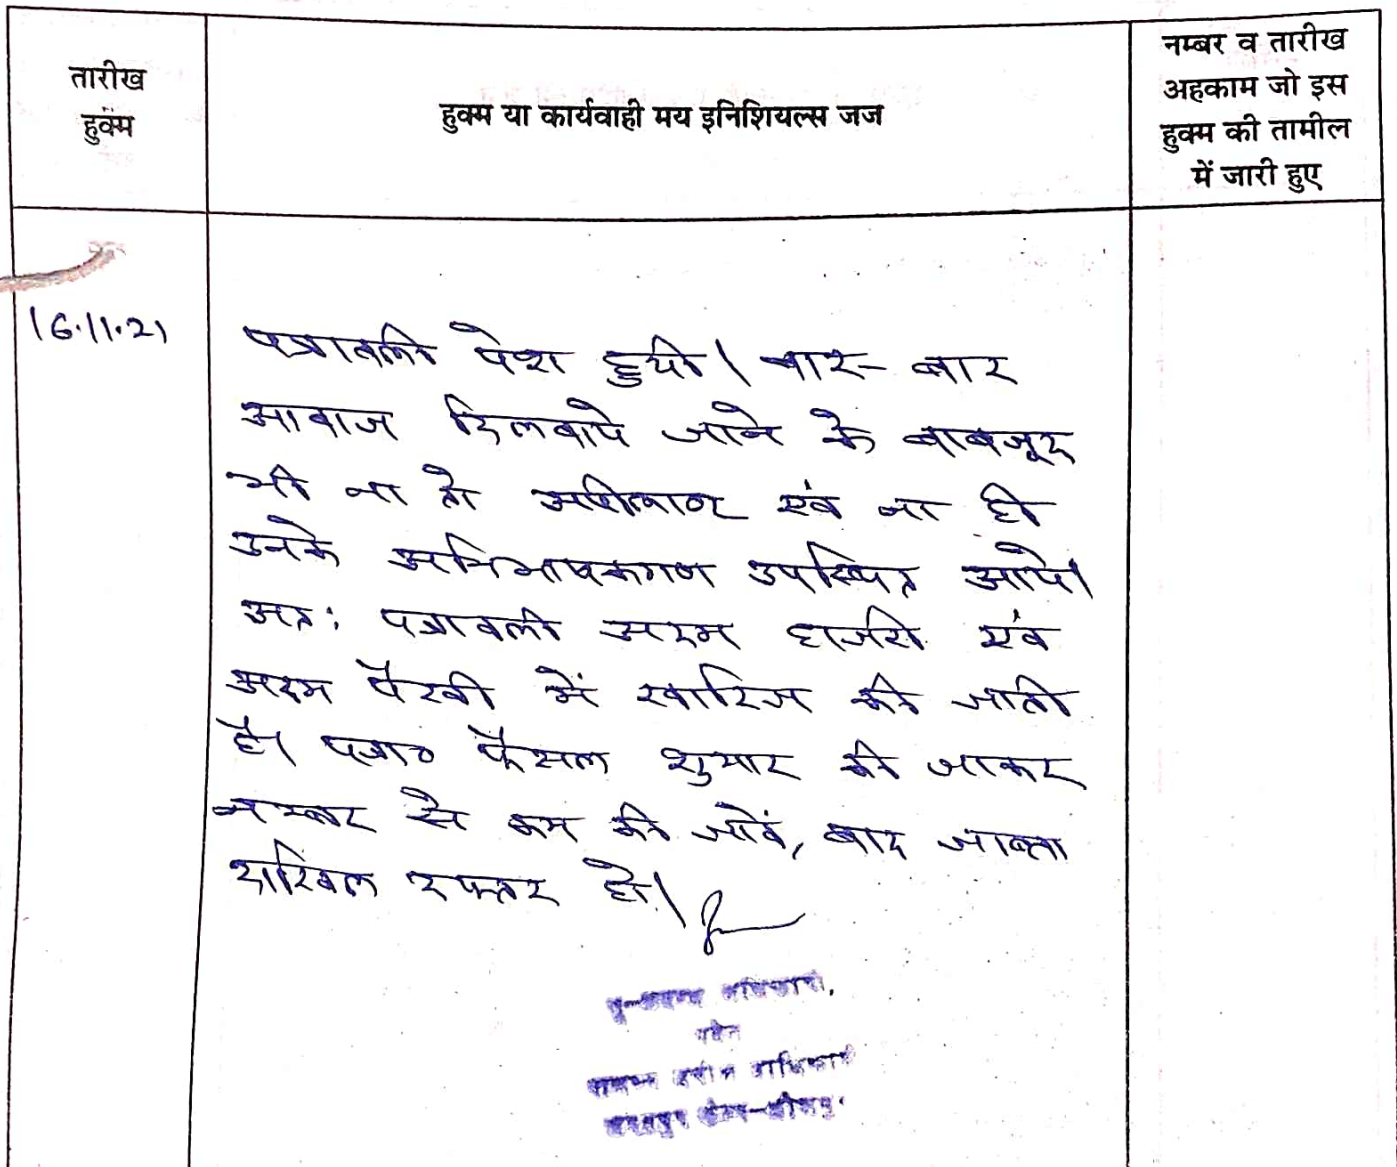 तारीख
हुक्म
हुक्म या कार्यवाही मय इनिशियल्स जज
नम्बर व तारीख
अहकाम जो इस
हुक्म की तामील
में जारी हुए
16.11.21
पत्रावली पेश हुयी। बार-बार
आवाज दिलवाये जाने के बावजूद
भी ना तो अपीलाण्ट एंव ना ही
उनके अभिभाषकगण उपस्थित आये।
अतः पत्रावली अदम हाजरी एंव
अदम पैरवी में खारिज की जाती
है। पत्रा० फैसल शुमार की जाकर
नम्बर से कम की जावें, बाद जाब्ता
दाखिल दफ्तर हो।
भू-प्रबन्ध अधिकारी,
पदेन
राजस्व अधिकारी